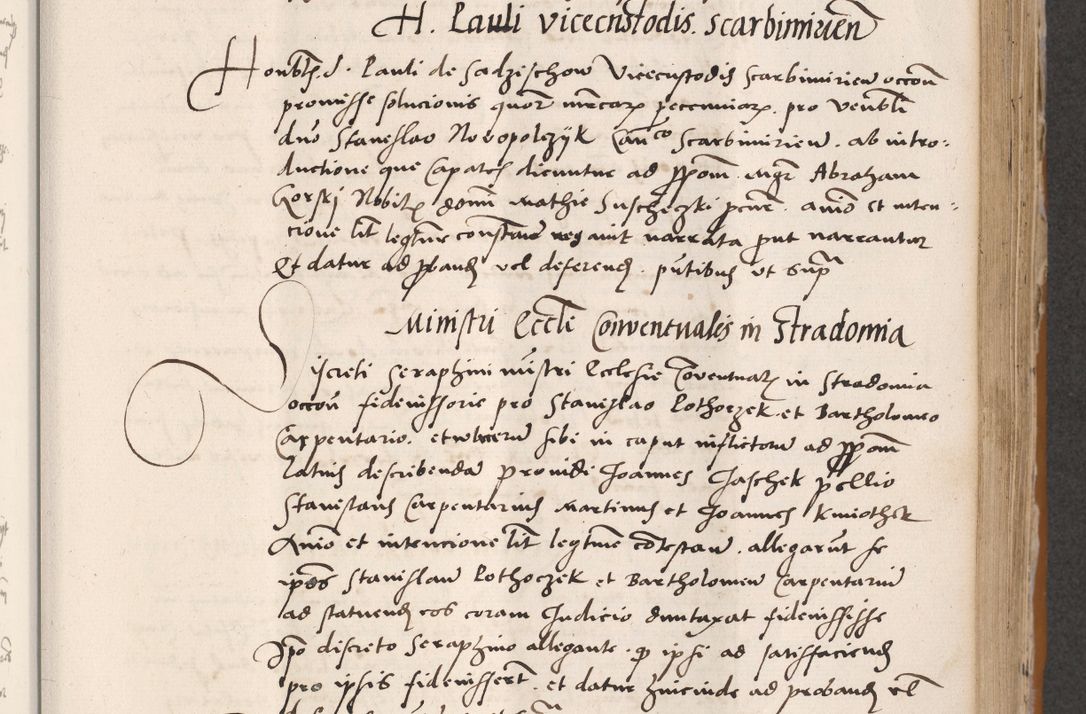 H. Pauli vicecustodis. Scarbimirien̄
Honbl̄. d. Pauli de Sadzischow Vicecustodis Scarbimirien̄ occōn
promisse solucionis quor͂ mrcarꝝ pecuniarꝝ. pro Venbl̄i
dno Stanislao Novopolczÿk Can̄co Scarbimirien̄. ab intro-
ductione que dicuntur ad ꝓpom̄. Mgr̄ Abraham
Gorski Nobil̄ Mathie Suscheczki. anīo et inten-
cione lit̄ legtīme constan̄ neg avit narrata put narrantur
Et datur ad ꝓband̄ vel deferend̄. pn̄tibus ut sup̄
Ministri Eccl̄e Conventualis in Stradomia
Discreti Seraphini mīstri Ecclesie Conventual̄ in Stradomia
occōn̄ fideiussorie pro Stanislao Pothoczek et Bartholomeo
Carpentario. et sibi in caput inflictorū ad ꝓpom̄
latius describendā providi Joannes Jaschek pellio
Stanislaus Carpentarius Martinus et Joannes Kmiothek
Anīo et intencione lit̄ legtīme cōtestan̄. allegarūt se
ipsos Stanislaū Pothoczek et Bartholomeū Carpentariū
ad statuend̄ eos coram Judicio duntaxat fideiussisse
Ipo discreto Seraphino allegante. ꝙ ipsi ad satisfaciend̄
pro ipsis fideiussert̄. et datur hincinde ad proband̄ vl̄